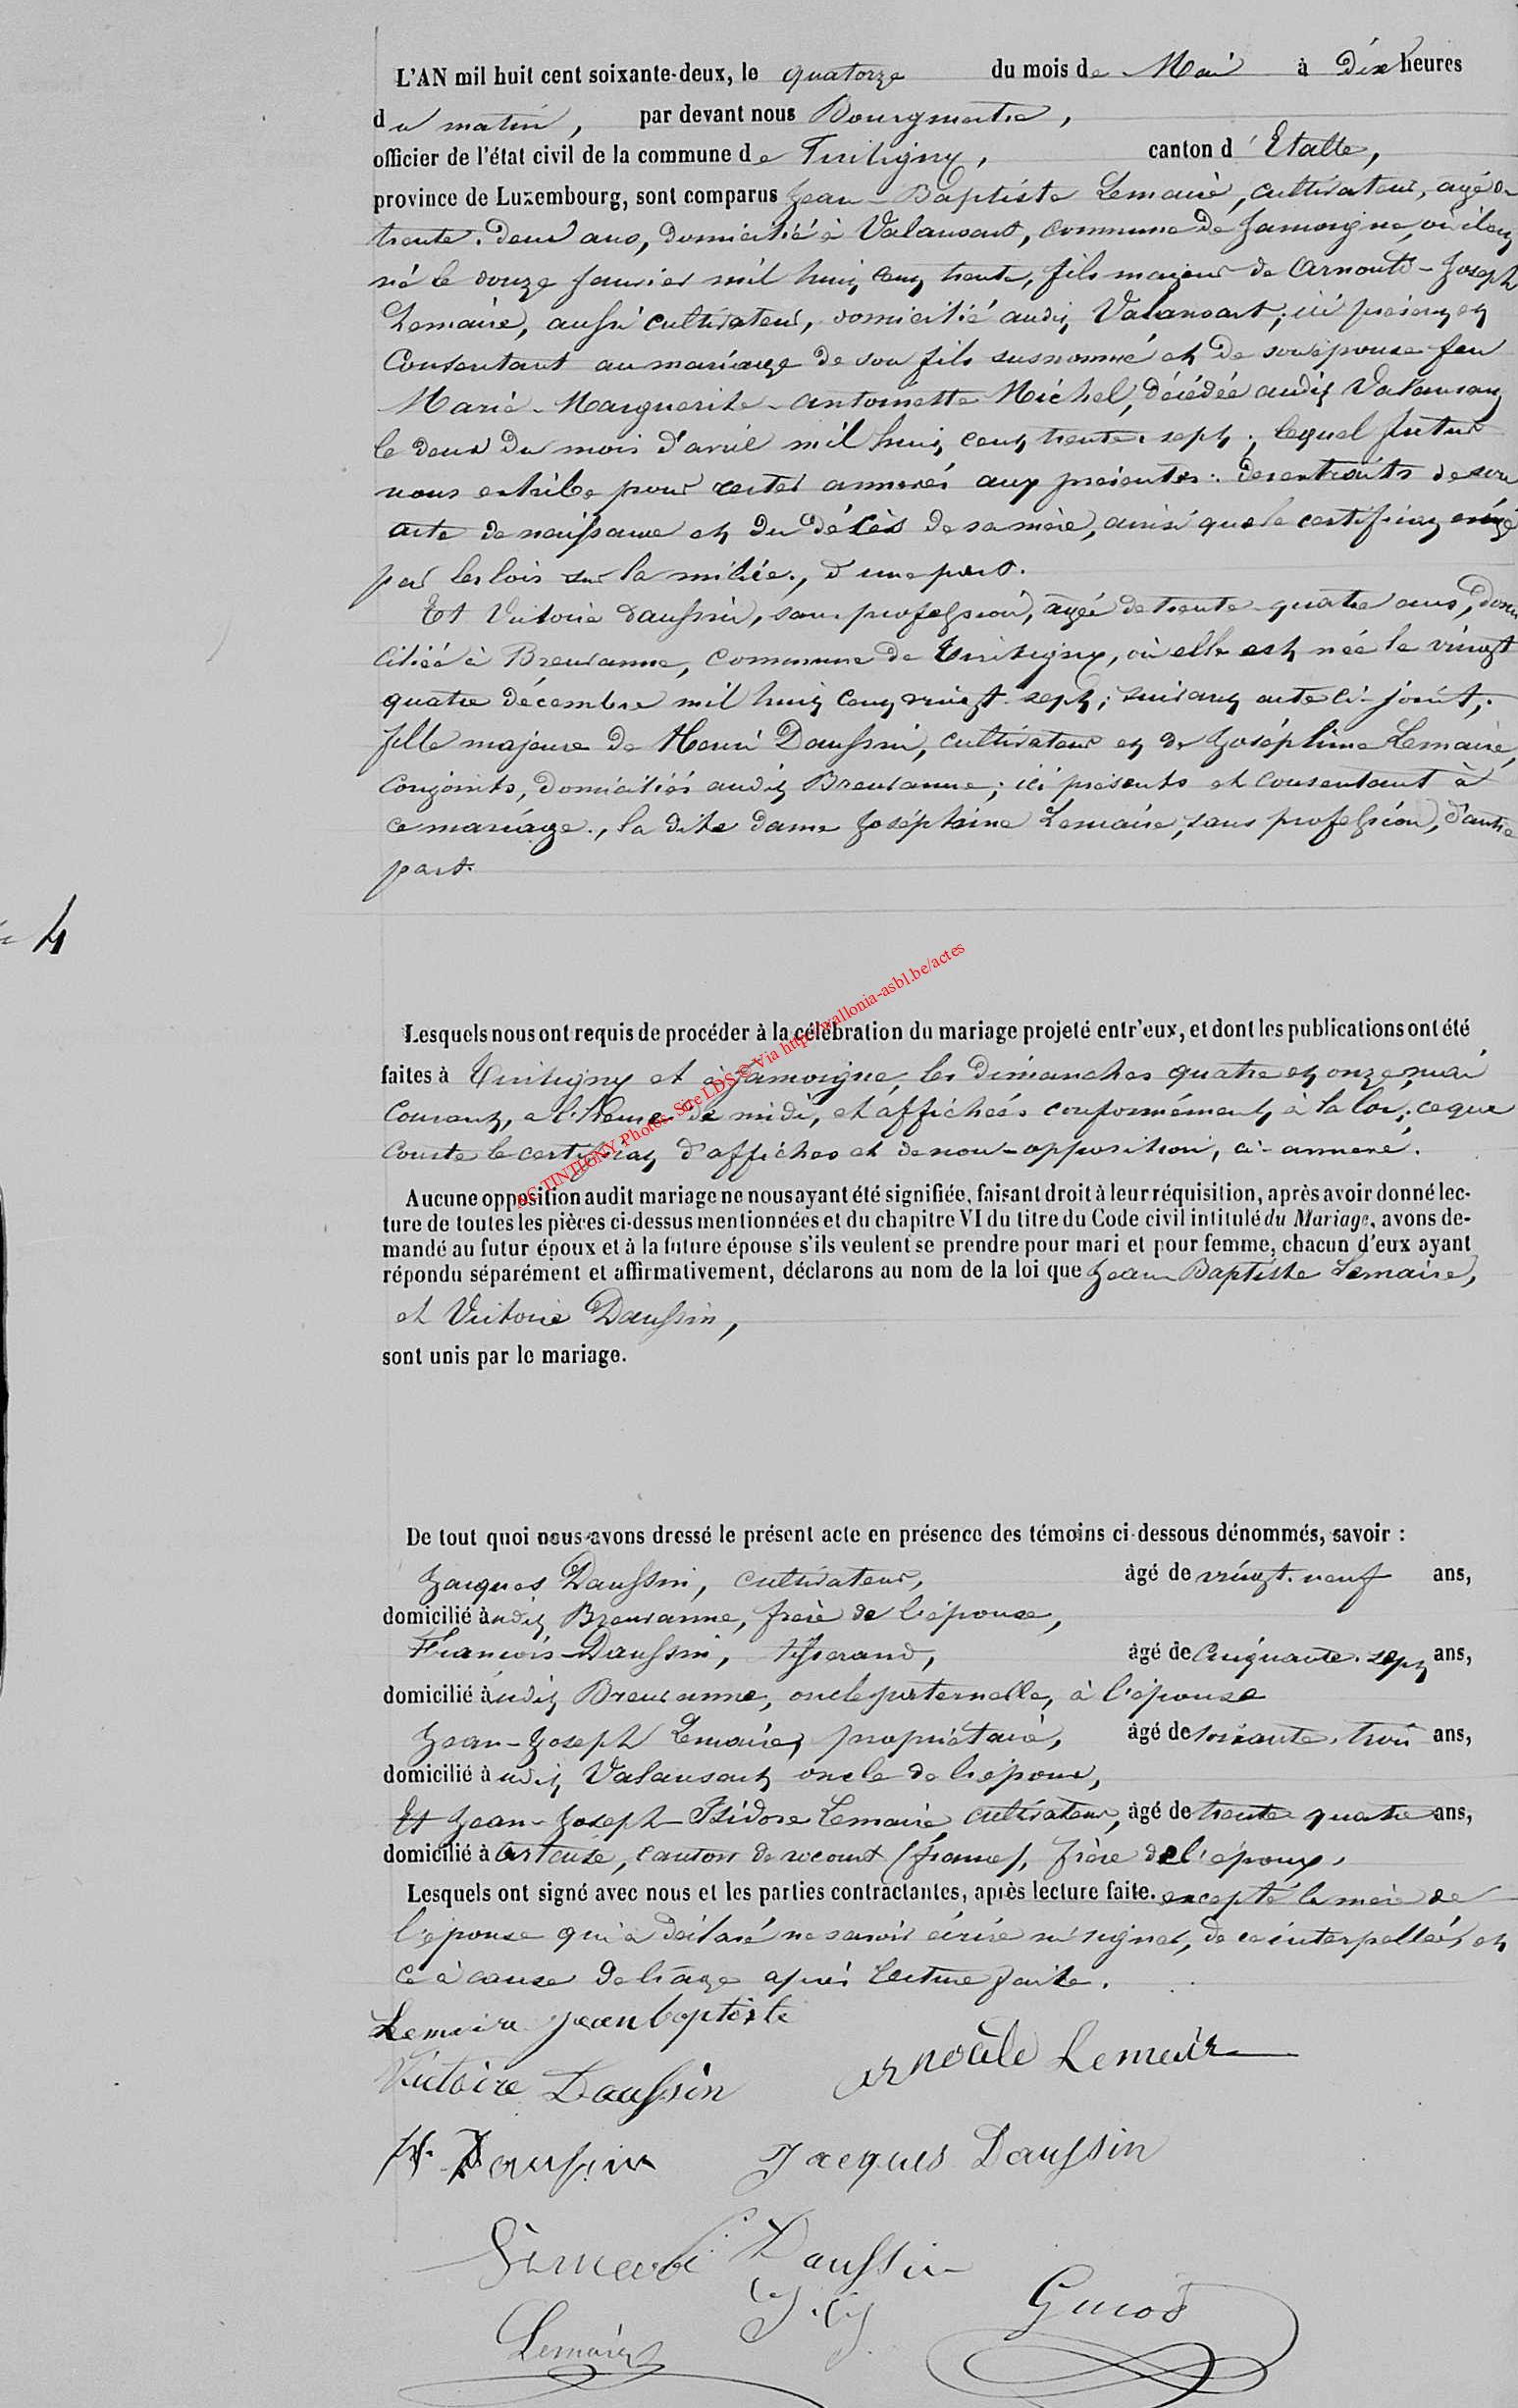 L'AN mil huit cent soixante-deux, le quatorze du mois de Mai à dix heures
du matin, par devant nous Bourgmestre,
officier de l'état civil de la commune de Tintigny, canton d'Etalle,
province de Luxembourg, sont comparus Jean-Baptiste Lemaire, cultivateur, agé de
trente-deux ans, domicilié à Valansart, commune de Jamoigne, où il est
né le douze Janvier mil huit cent trente, fils majeur de Arnould-Joseph
Lemaire, aussi cultivateur, domicilié audit Valansart, ici présent et
Consentant au mariage de son fils susnommé et de son épouse feu
Marie-Marguerite-antoinette Michel, décédée audit Valansart
le deux du mois d'avril mil huit cent trente-sept; lequel futur
nous exhibe pour rester annexés aux présentes: des extraits de son
acte de naissance et du décès de sa mère, ainsi que le certificat exigé
par les lois sur la milice, d'une part.
Et Victoire Daussin, sans profession, agée de trente-quatre ans, domi
ciliée à Breuvanne, commune de Tintigny, où elle est née le vingt
quatre décembre mil huit cent vingt-sept; suivant acte ci-joint;
fille majeure de Henri Daussin, cultivateur et de Joséphine Lemaire,
conjoints, domiciliés audit Breuvanne; ici présents et consentant à
ce mariage, la dite dame Joséphine Lemaire, sans profession, d'autre
part.
4
Lesquels nous ont requis de procéder à la célébration du mariage projeté entr'eux, et dont les publications ont été
faites à Tintigny et à Jamoigne, les dimanches quatre et onze mai
Courant, a l'heure de midi, et affichées conformément à la loi; ce que
Conste le certificat d'affiches et de non-opposition, ci-annexé.
AC TINTIGNY Photos. Site LDS © Via http://wallonia-asbl.be/actes
Aucune opposition audit mariage ne nous ayant été signifiée, faisant droit à leur réquisition, après avoir donné lec-
ture de toutes les pièces ci-dessus mentionnées et du chapitre VI du titre du Code civil intitulé du Mariage, avons de-
mandé au futur époux et à la future épouse s'ils veulent se prendre pour mari et pour femme, chacun d'eux ayant
répondu séparément et affirmativement, déclarons au nom de la loi que Jean Baptiste Lemaire,
et Victoire Daussin,
sont unis par le mariage.
De tout quoi nous avons dressé le présent acte en présence des témoins ci-dessous dénommés, savoir :
Jacques Daussin, cultivateur, âgé de vingt-neuf ans,
domicilié audit Breuvanne, frère de l'épouse,
François-Daussin, tisserand, âgé de Cinquante-sept ans,
domicilié audit Breuvanne, oncle paternelle, à l'épouse
Jean-Joseph Lemaire, propriétaire, âgé de soixante-trois ans,
domicilié audit Valansart oncle de l'époux,
Et Jean-Joseph-Isidore Lemaire, cultivateur, âgé de trente quatre ans,
domicilié à canton de (france), frère de l'époux,
Lesquels ont signé avec nous et les parties contractantes, après lecture faite. excepté la mère de
l'épouse qui a déclaré ne savoir écrire ni signer, de ce interpellée, et
ce à cause de l'âge après lecture faite.
Lemaire jean baptiste
arnoulde Lemaire
Victoire Daussin
H. Daussin Jacques Daussin
Daussin
Lemaire